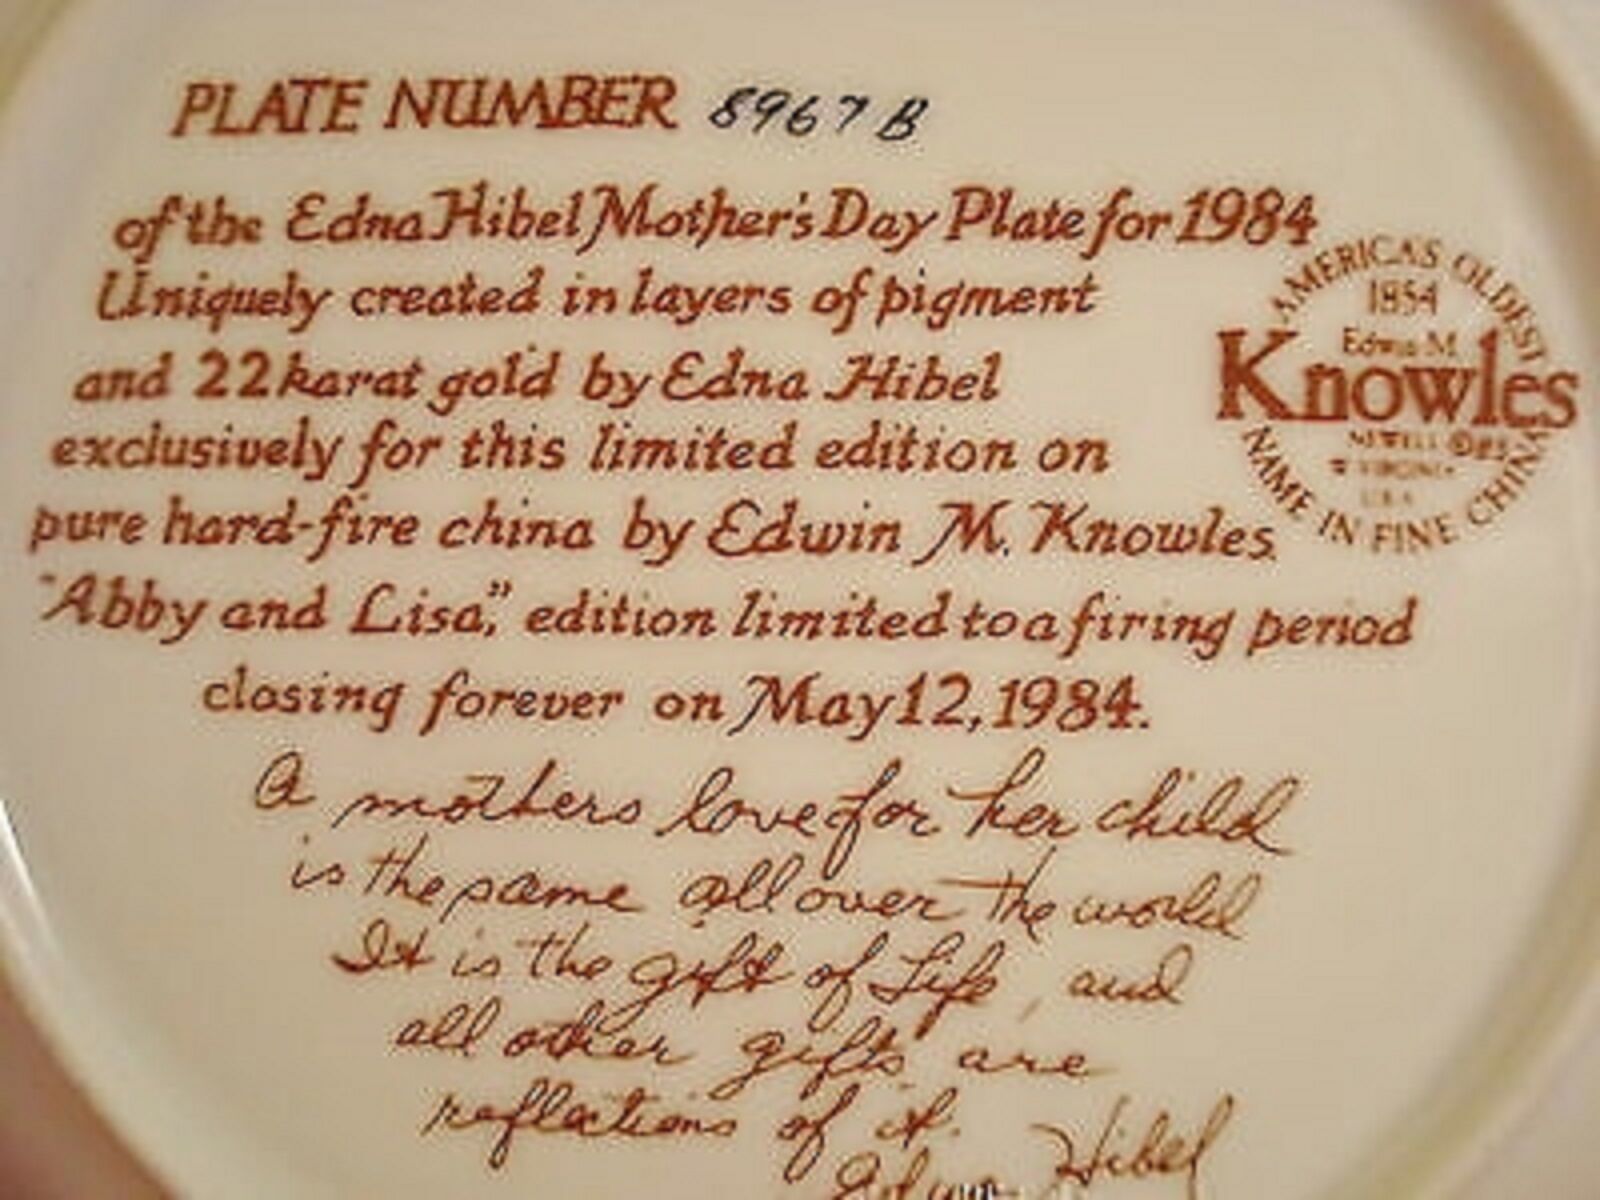 PLATE NUMBER 8967 B
of the Edna Hibel Mother's Day Plate for 1984
Uniquely created in layers of pigment
and 22 karat gold by Edna Hibel
exclusively for this limited edition on
pure hard-fire china by Edwin M. Knowles.
"Abby and Lisa," edition limited to a firing period
closing forever on May 12, 1984.
A mothers love for her child
is the same all over the world
It is the gift of Life, and
all other gifts are
reflections of it.
Edna Hibel
AMERICA'S OLDEST
1854
Edwin M
Knowles
NEWELL
W VIRGINIA
U.S.A
NAME IN FINE CHINA